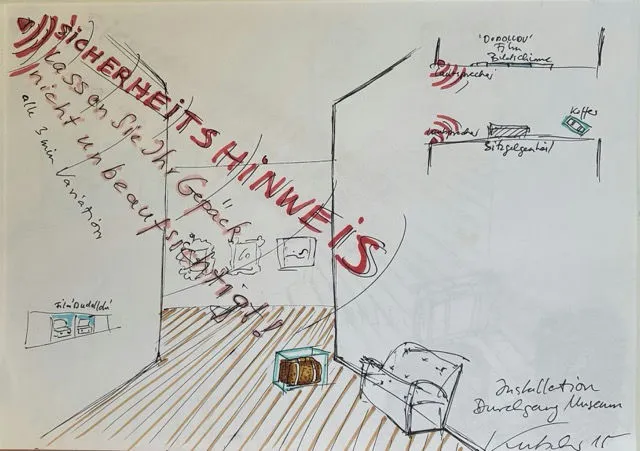 SICHERHEITSHINWEIS
Lassen Sie Ihr Gepäck
nicht unbeaufsichtigt!
alle 3 min Variation
'DUDOLLOU'
Film
Bildschirme
Lautsprecher
Koffer
Lautsprecher
Sitzgelegenheit
Installation
Durchgang Museum
15